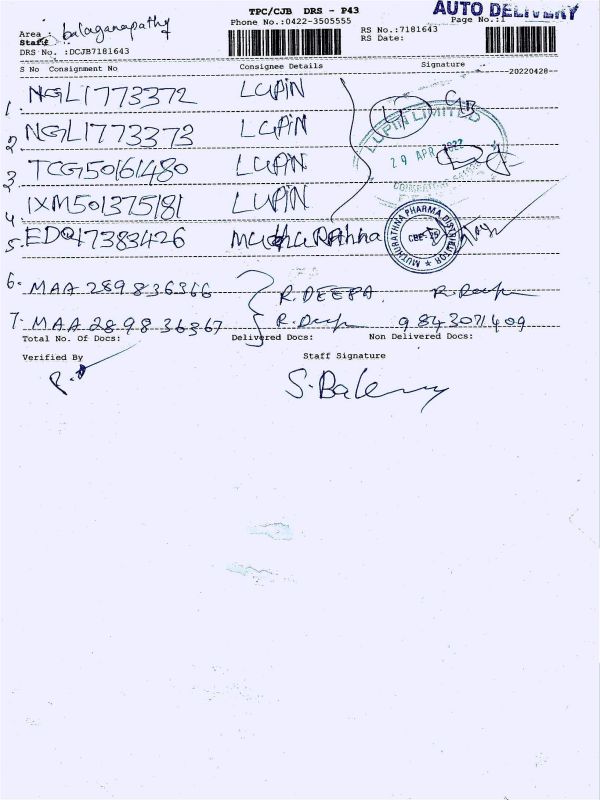 AUTO DELIVERY
TPC/CJB DRS - P43
Page No.:1
Phone No.:0422-3505555
Area : balaganapathy
RS No.:7181643
Staff
RS Date:
DRS No. :DCJB7181643
S No Consignment No Consignee Details Signature
20220428
1. NGL1773372 LUPIN
2. NGL1773373 LUPIN
LUPIN LIMITED
29 APR 2022
3. TCG50161480 LUPIN
4. IXM501375181 LUPIN
MUTHURATHNA PHARMA DISTRIBUTOR
CBE-
5. EDQ17383426 MuthuRathna
6. MAA 289836366 R. DEEPA.
7. MAA 289836367 R. Deepa 9843071409
Total No. Of Docs: Delivered Docs: Non Delivered Docs:
Verified By Staff Signature